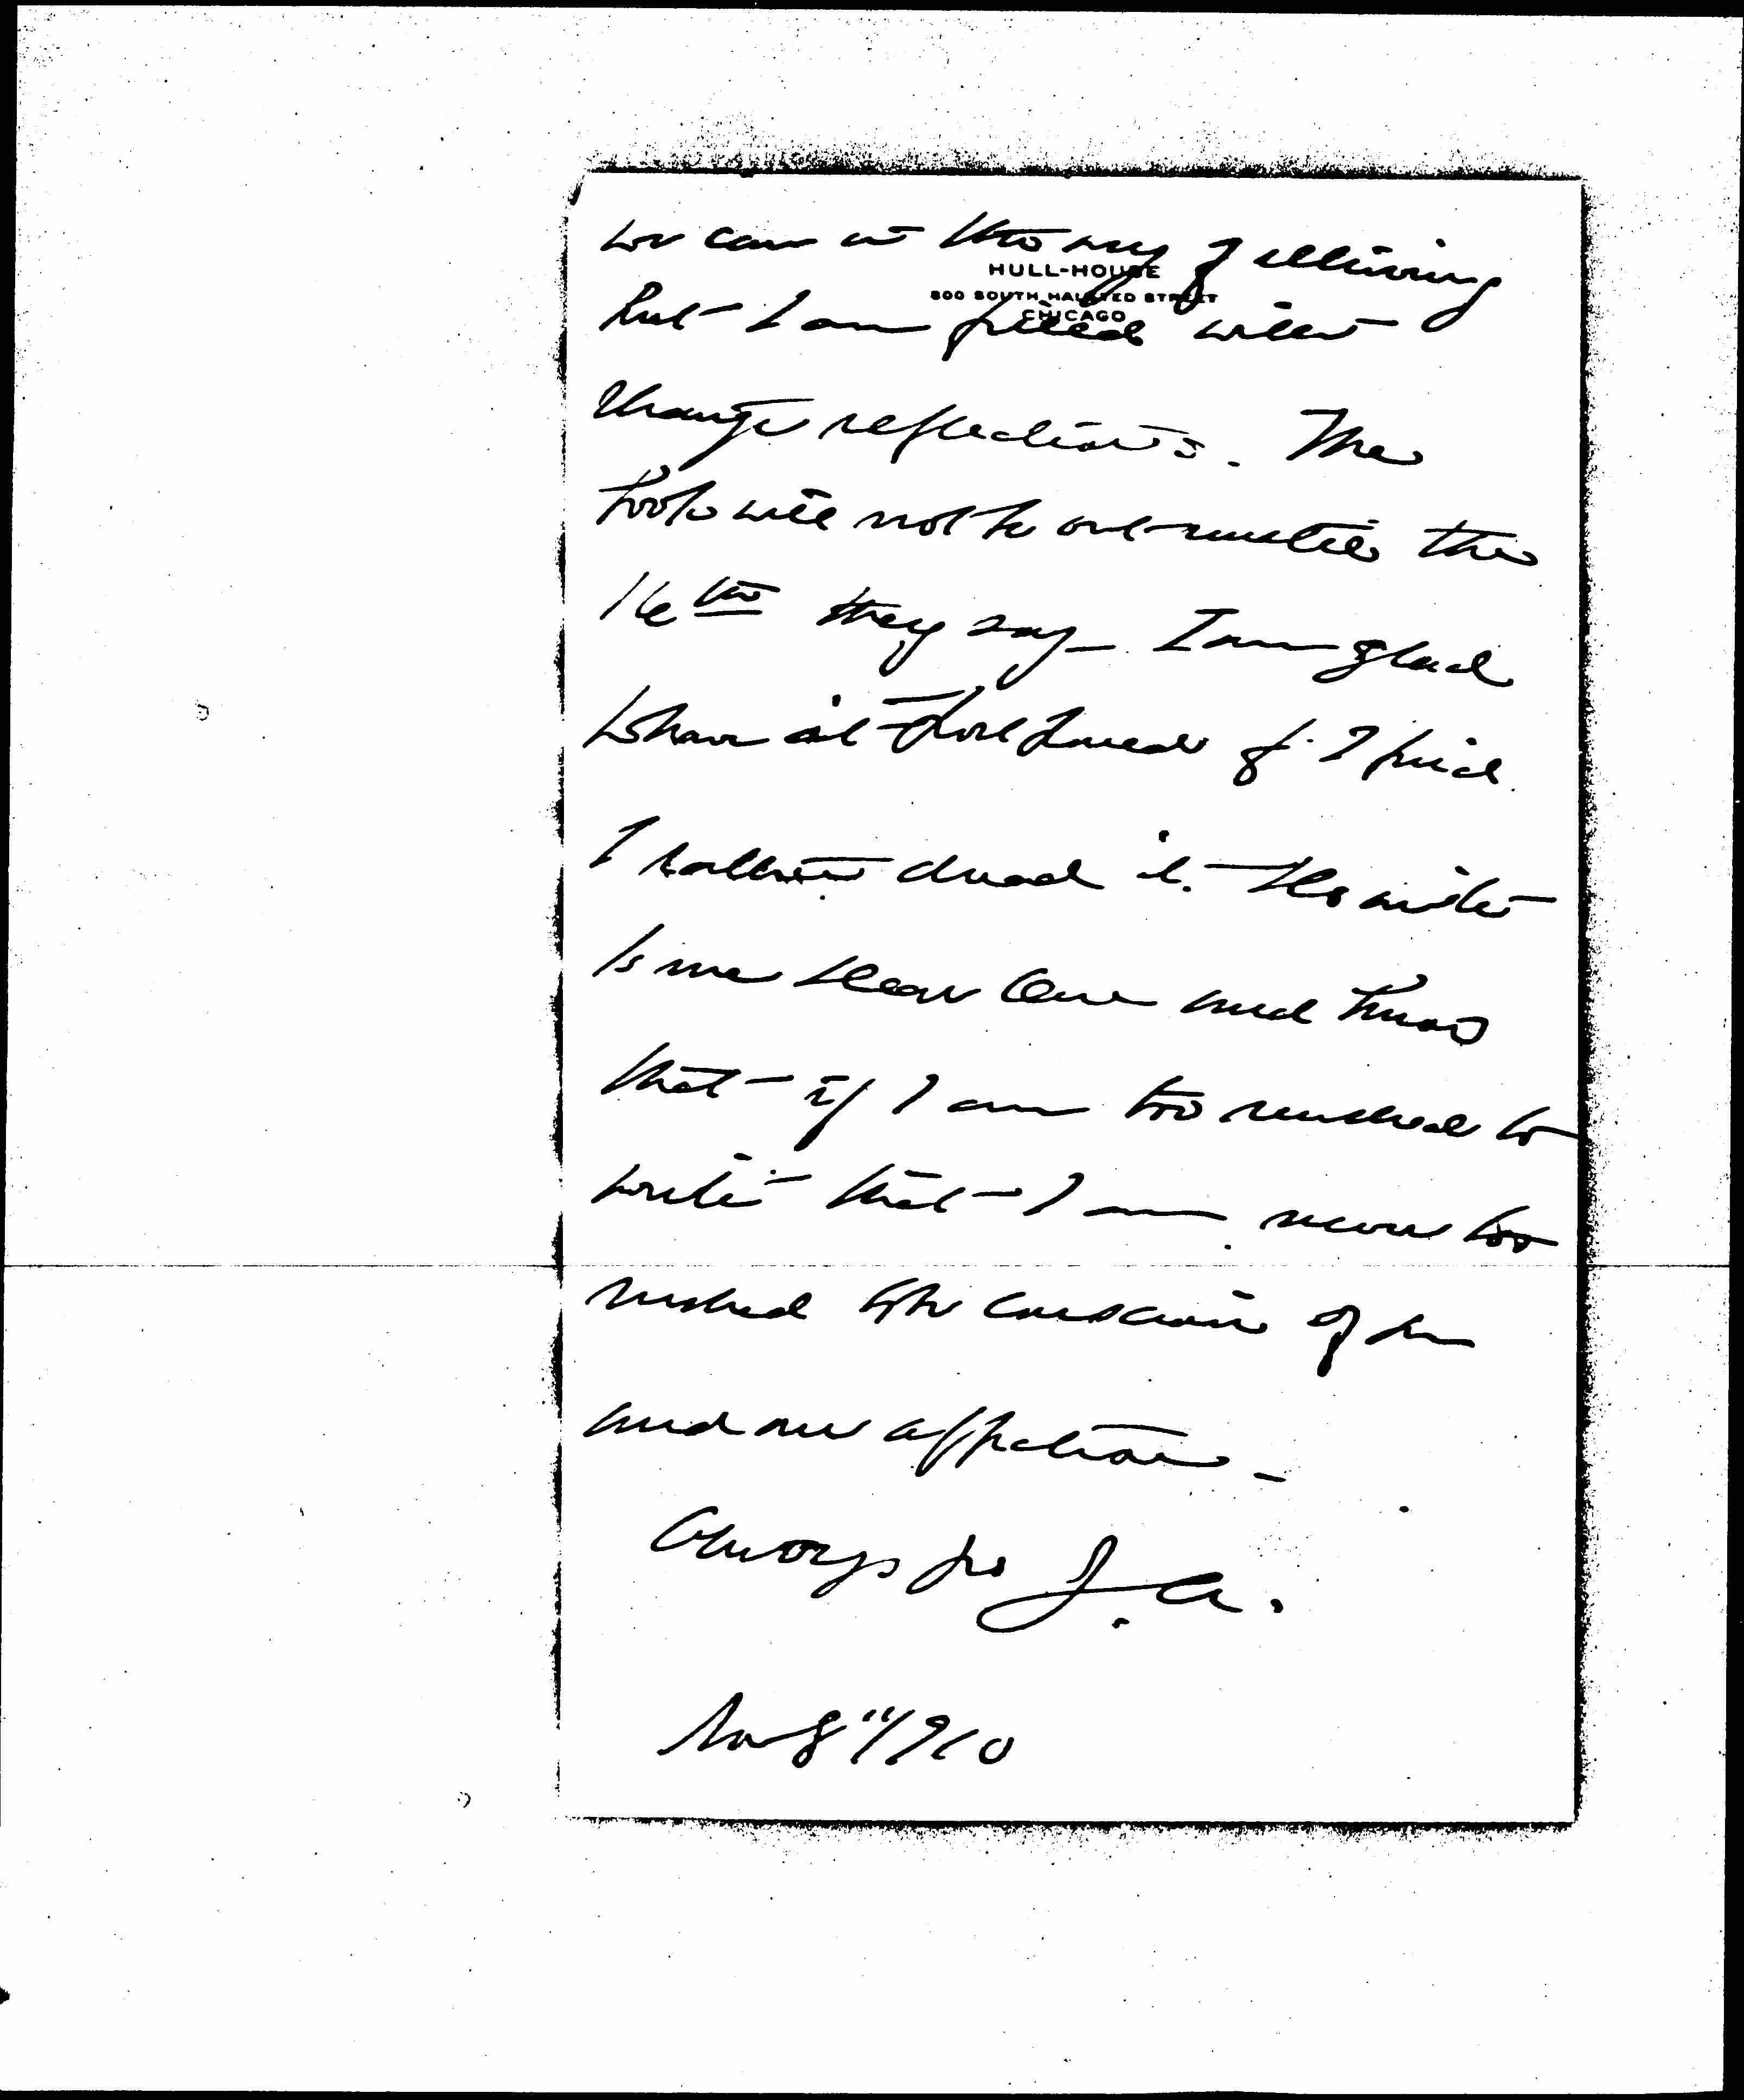 we can in the way of
HULL-HOUSE
800 SOUTH HALSTED STREET
CHICAGO
But I am filled with
strange reflections. The
book will not be out until the
16th they say – I am glad
to have it postponed for I find
I rather dread it. Do write
to me dear One and know
that if I am too rushed to
write that I am never too
rushed to be conscious of you
and our affection –
Always yrs J.A.
Nov 8" 1910